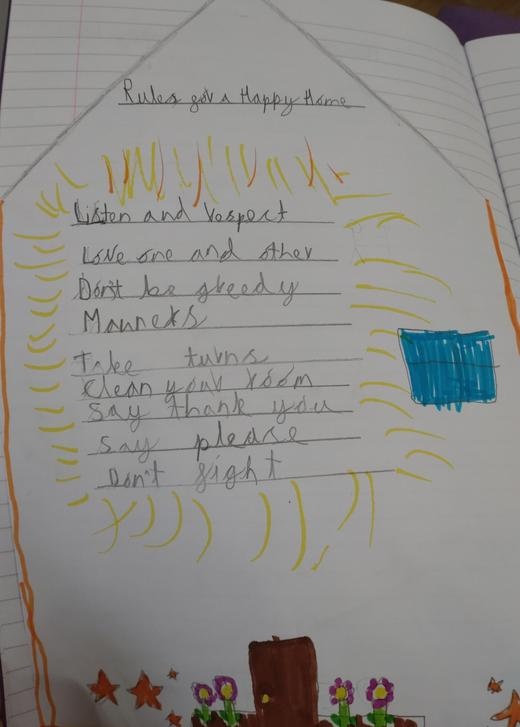 Rules for a Happy Home
Listen and respect
Love one and other
Don't be greedy
Manners
Take turns
Clean your room
Say thank you
Say please
Don't fight